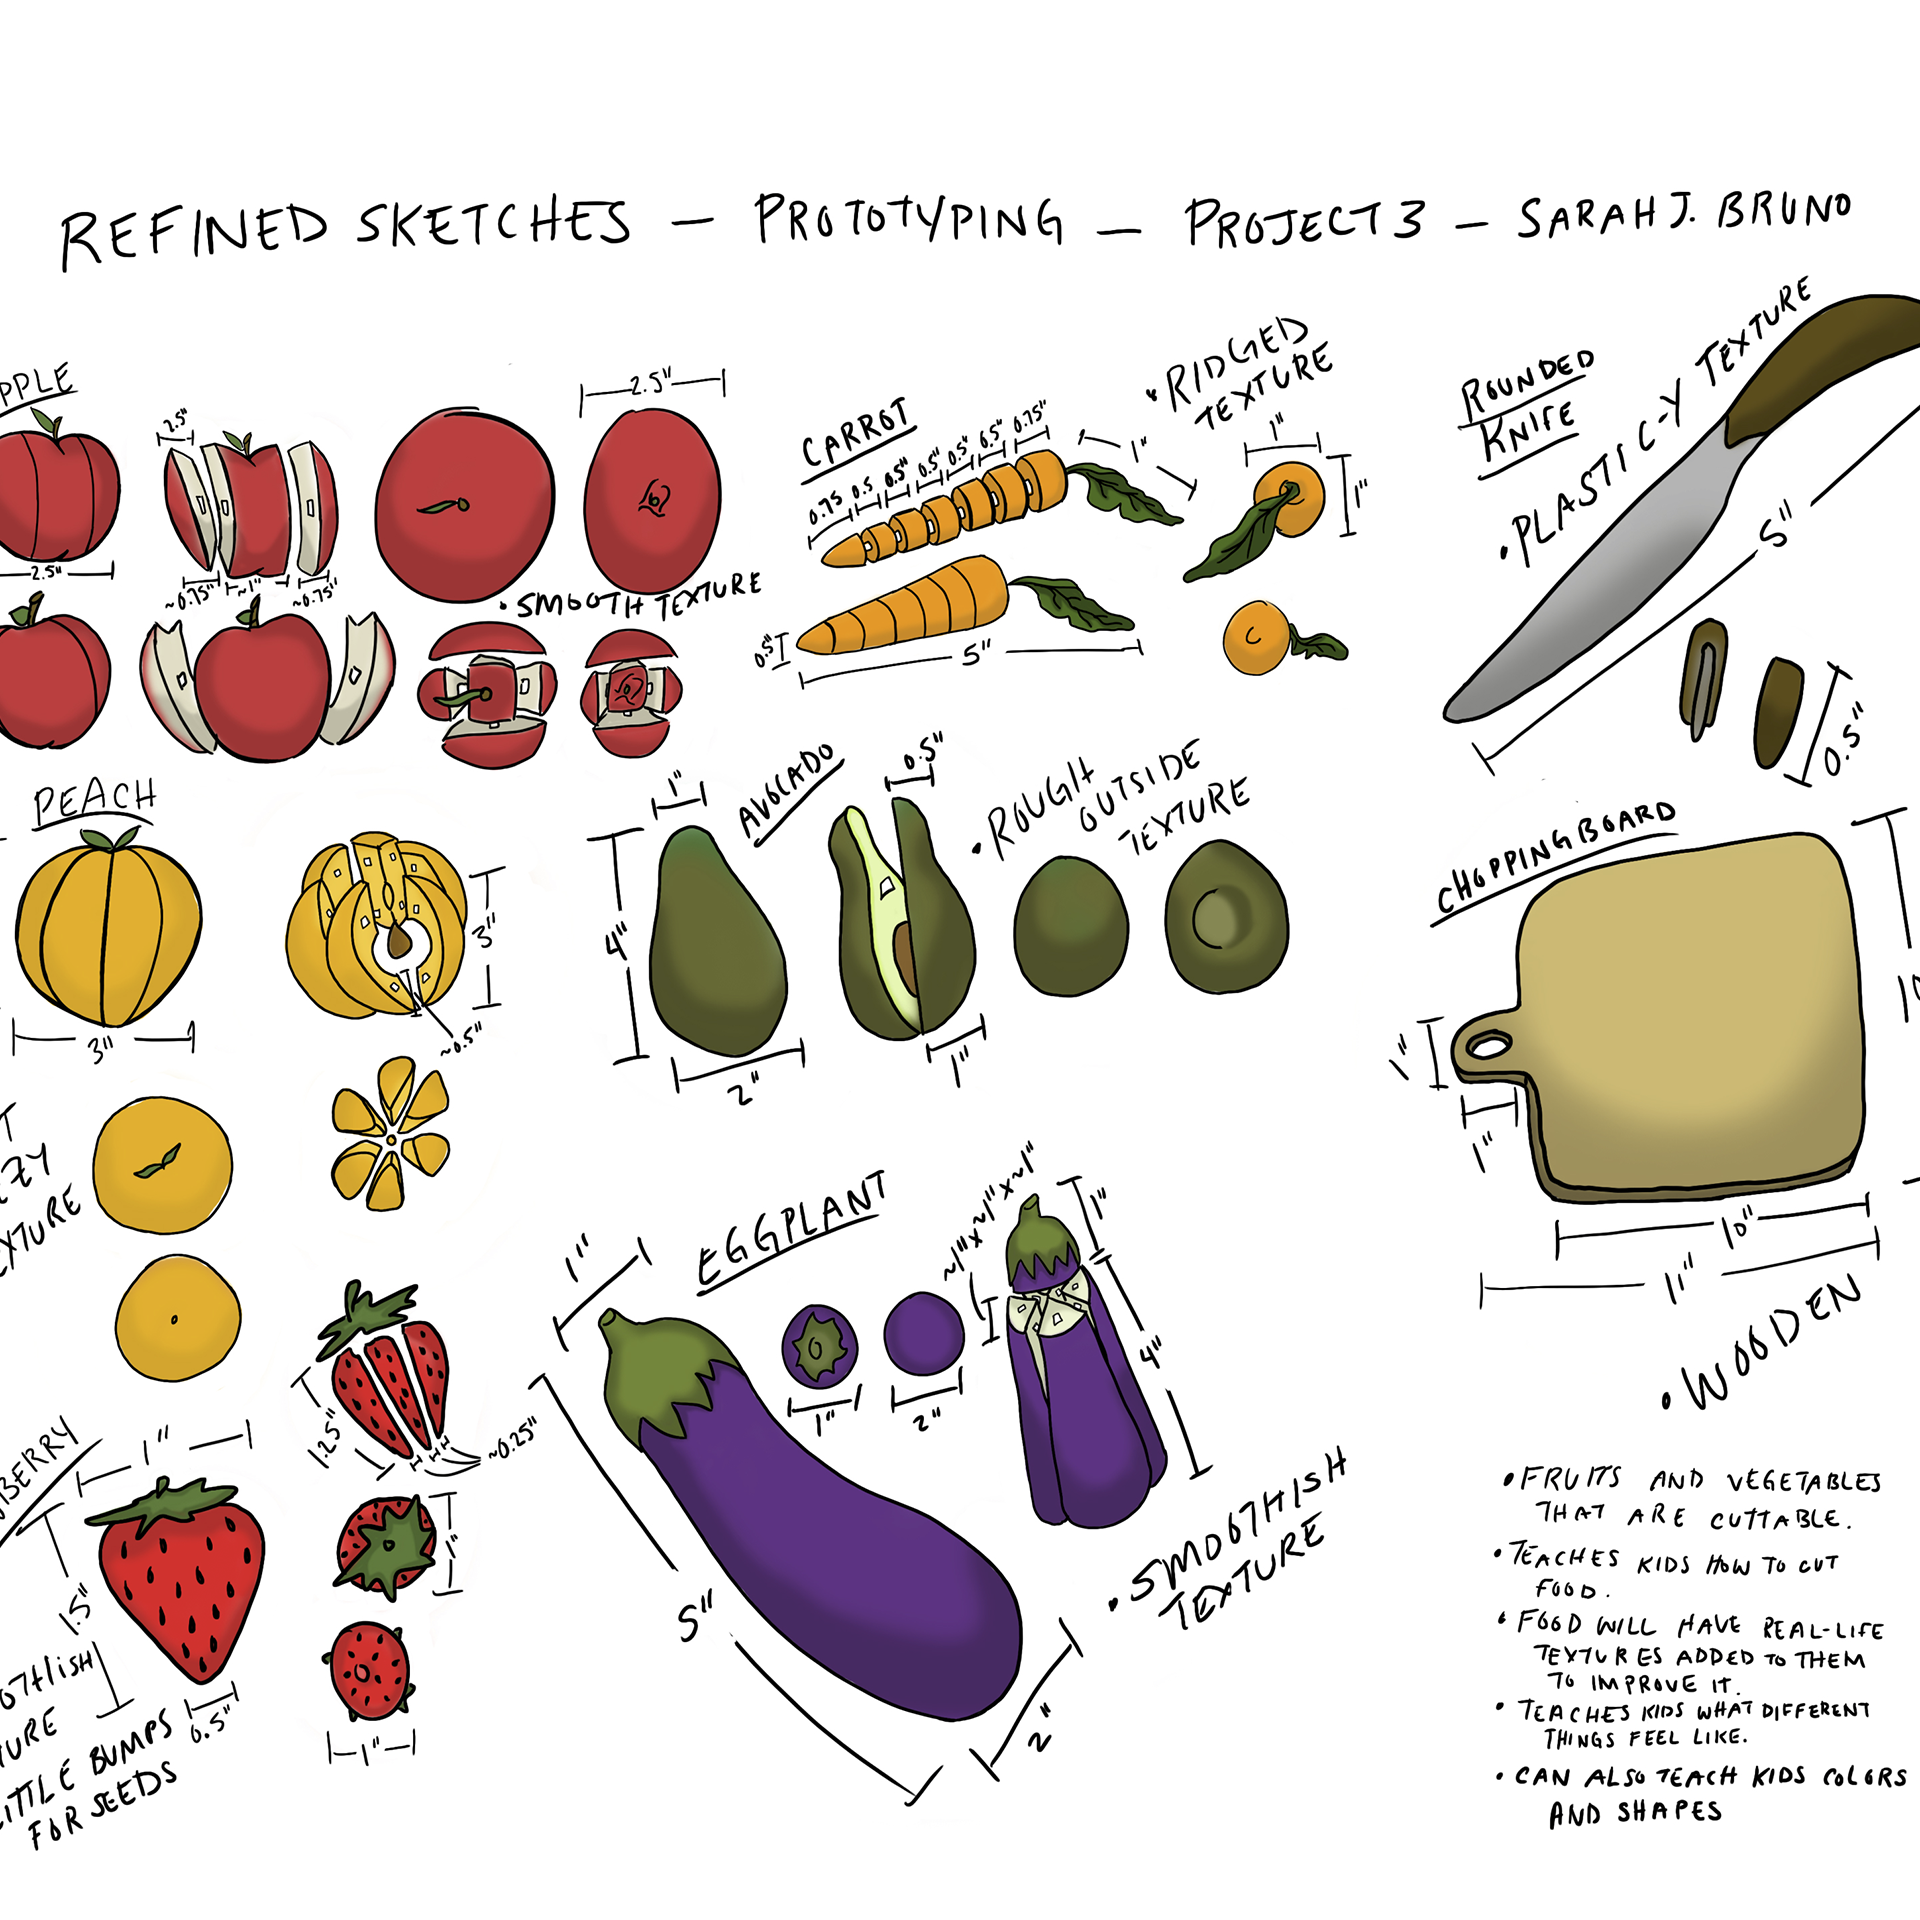 REFINED SKETCHES — PROTOTYPING — PROJECT 3 — SARAH J. BRUNO
PPLE
2.5"
2.5"
~0.75"
~1"
~0.75"
2.5"
• SMOOTH TEXTURE
CARROT
0.75
0.5
0.5"
0.5"
0.5"
0.5"
0.75"
1"
• RIDGED
TEXTURE
1"
1"
0.5"
5"
ROUNDED
KNIFE
• PLASTIC-Y TEXTURE
5"
0.5"
PEACH
3"
3"
~0.5"
T
ZY
EXTURE
AVOCADO
1"
4"
2"
0.5"
1"
• ROUGH
OUTSIDE
TEXTURE
CHOPPING BOARD
1"
1"
10"
11"
• WOODEN
BERRY
1"
1.5"
0.5"
OTHISH
URE
ITTLE BUMPS
FOR SEEDS
1.25"
~0.25"
1"
1"
EGGPLANT
1"
5"
2"
1"
2"
~1"x~1"x~1"
1"
4"
• SMOOTHISH
TEXTURE
• FRUITS AND VEGETABLES
THAT ARE CUTTABLE.
• TEACHES KIDS HOW TO CUT
FOOD.
• FOOD WILL HAVE REAL-LIFE
TEXTURES ADDED TO THEM
TO IMPROVE IT.
• TEACHES KIDS WHAT DIFFERENT
THINGS FEEL LIKE.
• CAN ALSO TEACH KIDS COLORS
AND SHAPES